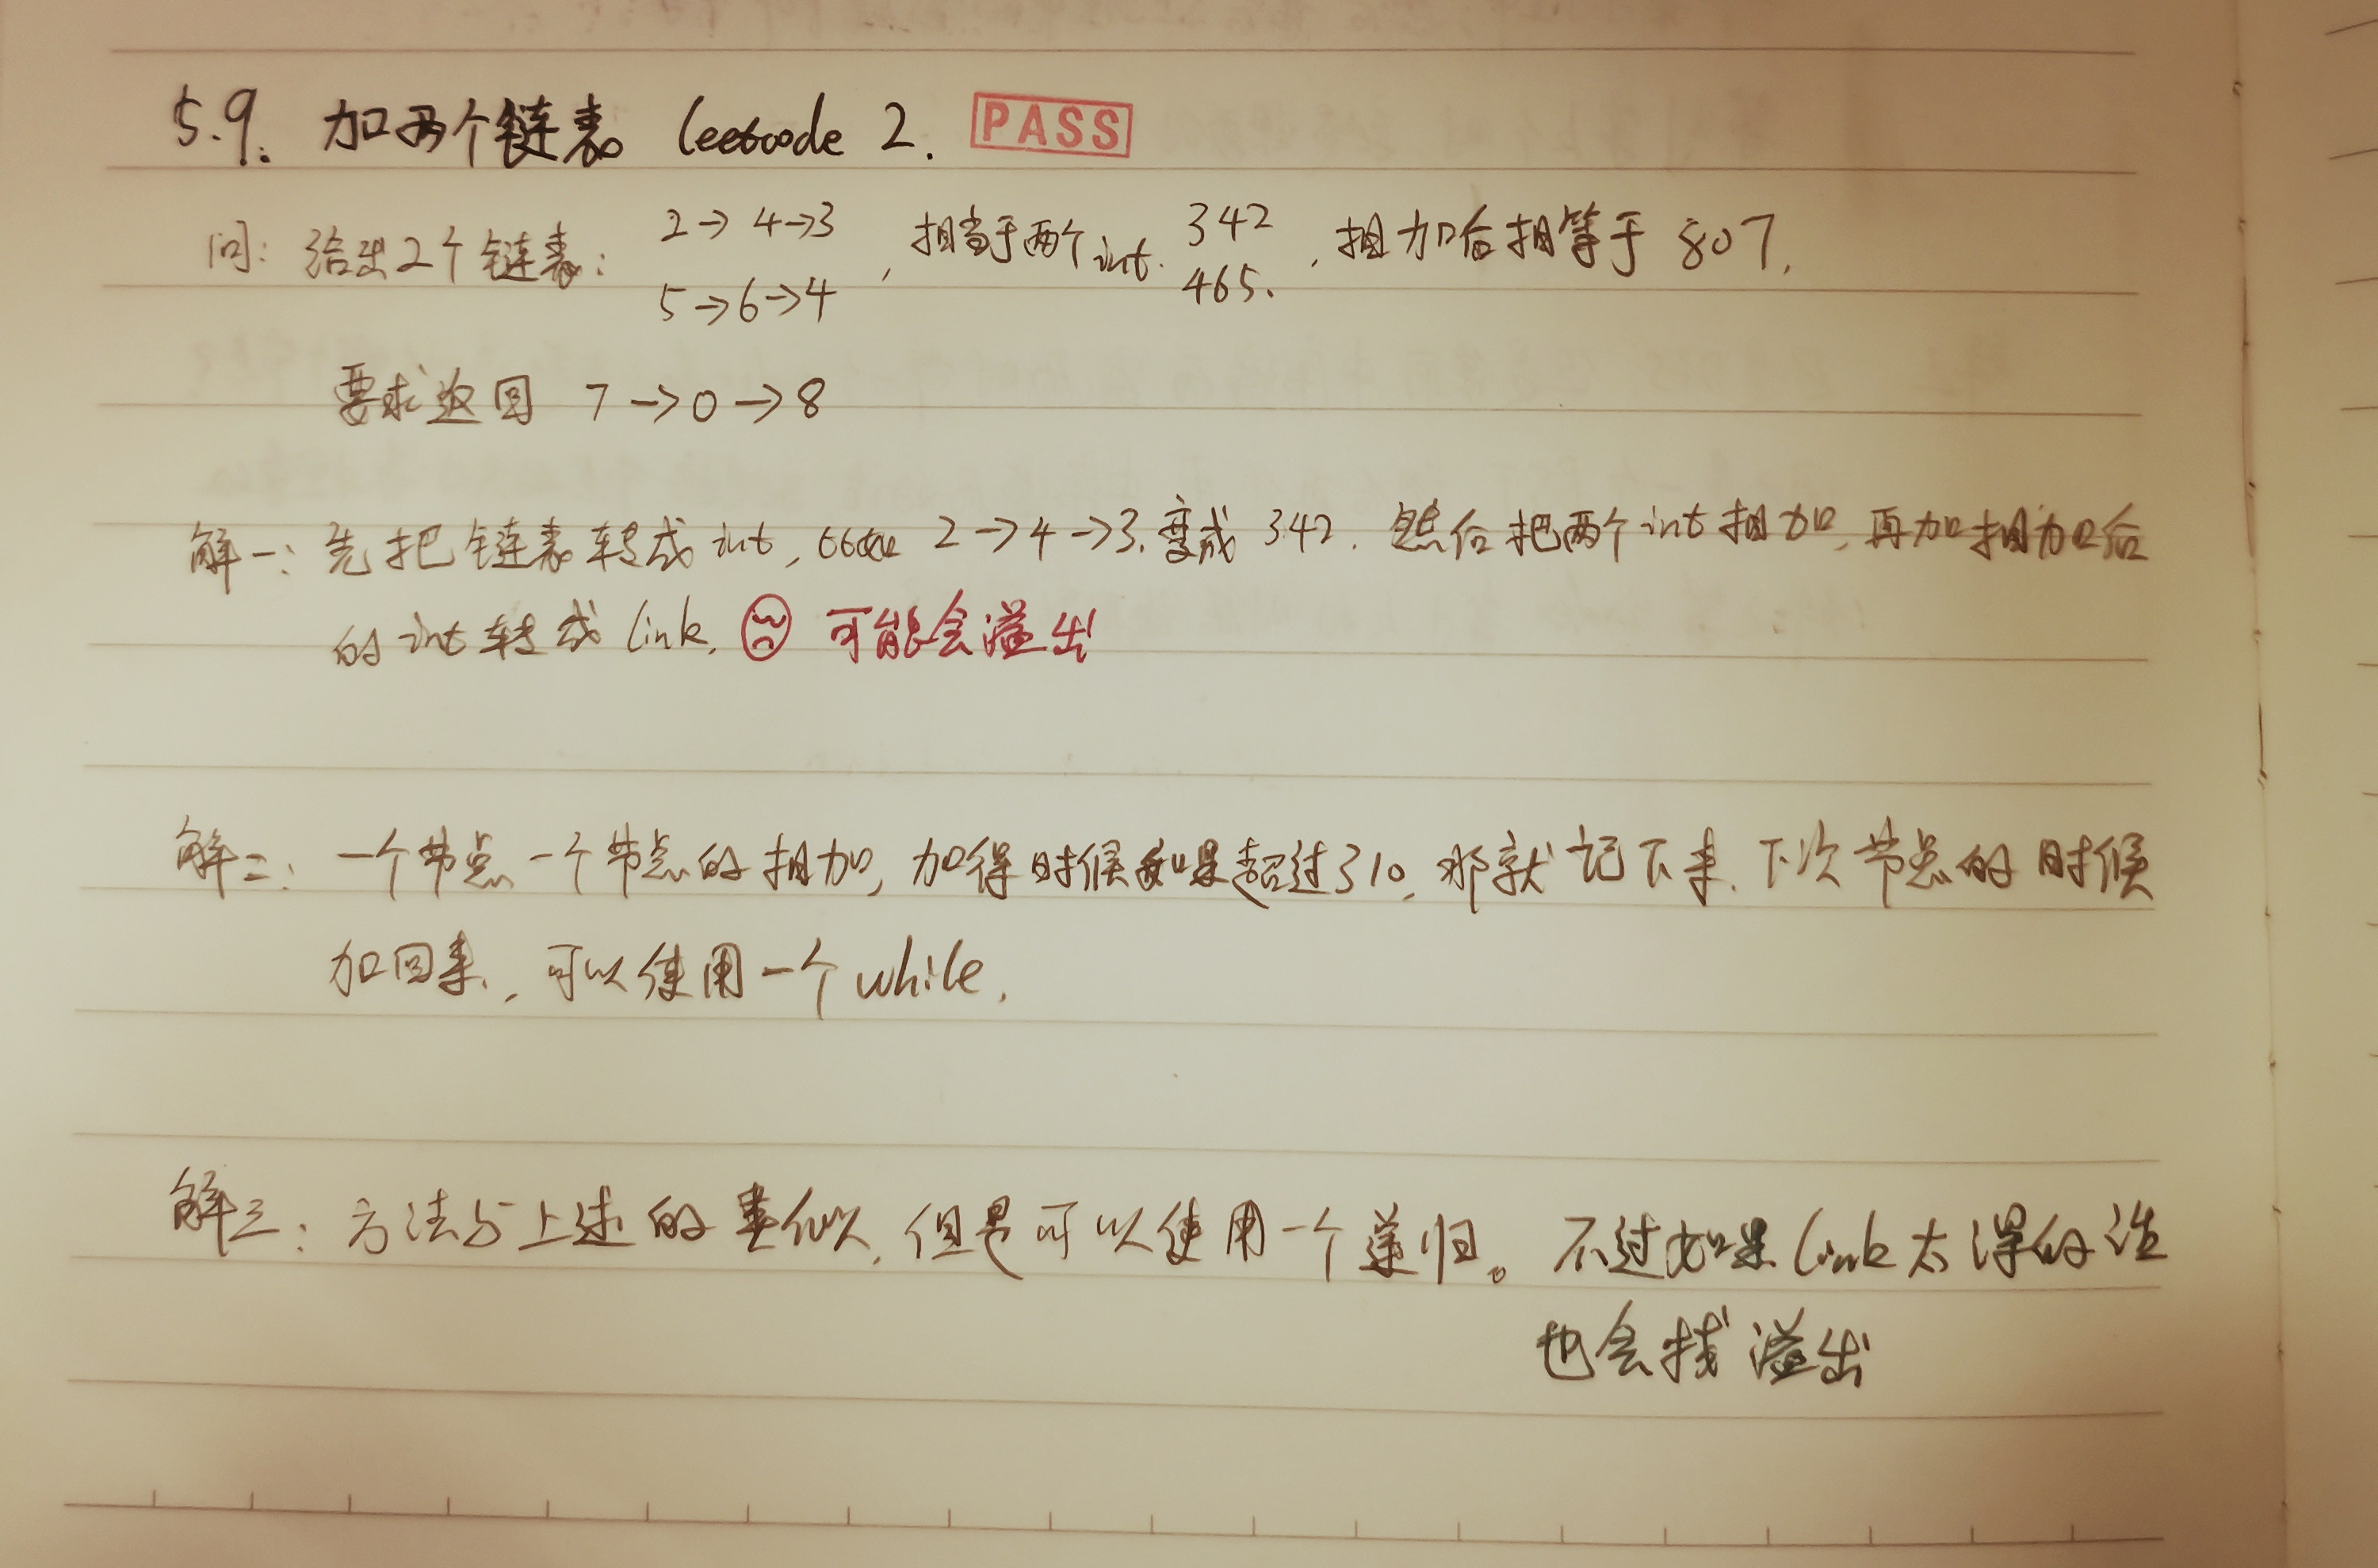 5.9. 加两个链表 leetcode 2. PASS
问: 给出2个链表: 2→4→3 , 相当于两个int. 342 , 相加后相等于 807,
5→6→4 465.
要求返回 7→0→8
解一: 先把链表转成 int, 2→4→3. 变成 342. 然后把两个int相加, 再加相加后
的 int 转成 link. 可能会溢出
解二: 一个节点一个节点的相加, 加得时候如果超过了10, 那就记下来, 下次节点的时候
加回来, 可以使用一个 while.
解三: 方法与上述的类似, 但是可以使用一个递归。不过如果 link 太深的话
也会栈溢出